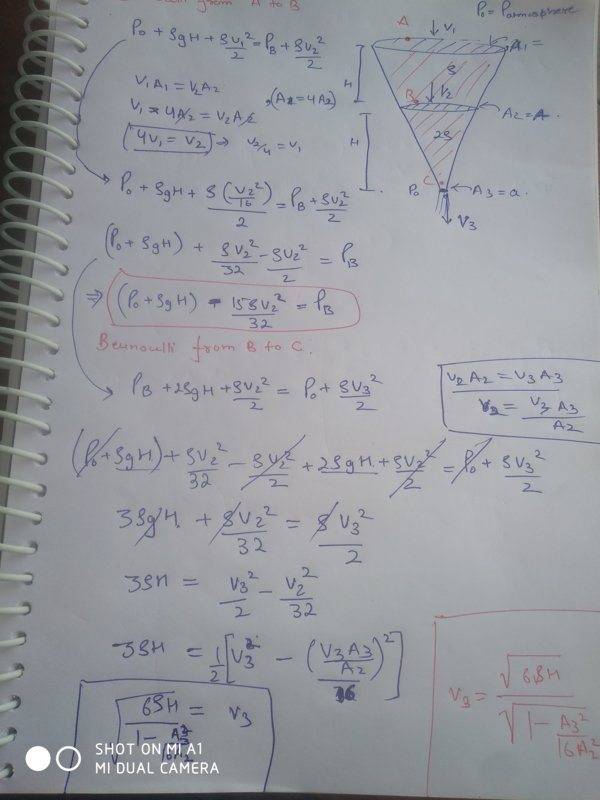 Bernoulli from A to B
P₀ = Patmosphere
P₀ + ρgH + ρv₁²/2 = P_B + ρv₂²/2
V₁A₁ = V₂A₂
V₁ × 4A₂ = V₂A₂ , (A₁ = 4A₂)
(4V₁ = V₂) → V₂/4 = V₁
A
↓ V₁
A₁ =
H
ρ
B
↓ V₂
A₂ = A
H
2ρ
C
P₀
A₃ = a
V₃
P₀ + ρgH + ρ(V₂²/16)/2 = P_B + ρV₂²/2
(P₀ + ρgH) + ρV₂²/32 - ρV₂²/2 = P_B
⇒ (P₀ + ρgH) - 15ρV₂²/32 = P_B
Bernoulli from B to C.
P_B + 2ρgH + ρV₂²/2 = P₀ + ρV₃²/2
V₂A₂ = V₃A₃
V₂ = V₃A₃/A₂
(P₀ + ρgH) + ρV₂²/32 - ρV₂²/2 + 2ρgH + ρV₂²/2 = P₀ + ρV₃²/2
3ρgH + ρV₂²/32 = ρV₃²/2
3gH = V₃²/2 - V₂²/32
3gH = 1/2 [V₃² - (V₃A₃/A₂)²/16]
√(6gH/(1 - A₃²/16A₂²)) = V₃
V₃ = √(6gH)/√(1 - A₃²/16A₂²)
SHOT ON MI A1
MI DUAL CAMERA